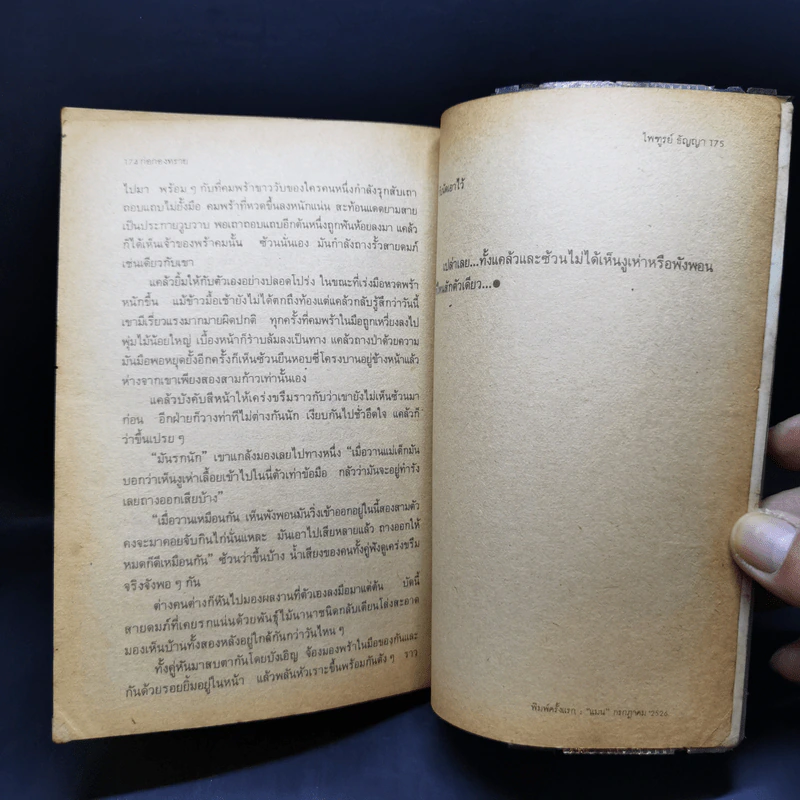 174 ก่อกองทราย
ไปมา พร้อม ๆ กับที่คมพร้าขาววับของใครคนหนึ่งกำลังรุกสับเถา
ถอบแถบไม่ยั้งมือ คมพร้าที่หวดขึ้นลงหนักแน่น สะท้อนแดดยามสาย
เป็นประกายวูบวาบ พอเถาถอบแถบอีกต้นหนึ่งถูกฟันห้อยลงมา แคล้ว
ก็ได้เห็นเจ้าของพร้าคมนั้น ซ้วนนั่นเอง มันกำลังถางรั้วสายดมภ์
เช่นเดียวกับเขา
แคล้วยิ้มให้กับตัวเองอย่างปลอดโปร่ง ในขณะที่เร่งมือหวดพร้า
หนักขึ้น แม้ข้าวมื้อเช้ายังไม่ได้ตกถึงท้องแต่แคล้วกลับรู้สึกว่าวันนี้
เขามีเรี่ยวแรงมากมายผิดปกติ ทุกครั้งที่คมพร้าในมือถูกเหวี่ยงลงไป
พุ่มไม้น้อยใหญ่ เบื้องหน้าก็ร่าบล้มลงเป็นทาง แคล้วถางป่าด้วยความ
มันมือพอหยุดยั้งอีกครั้งก็เห็นซ้วนยืนหอบซี่โครงบานอยู่ข้างหน้าแล้ว
ห่างจากเขาเพียงสองสามก้าวเท่านั้นเอง
แคล้วบังคับสีหน้าให้เคร่งขรึมราวกับว่าเขายังไม่เห็นซ้วนมา
ก่อน อีกฝ่ายก็วางท่าที่ไม่ต่างกันนัก เงียบกันไปชั่วอึดใจ แคล้วก็
ว่าขึ้นเปรย ๆ
“มันรกนัก” เขาแกล้งมองเลยไปทางหนึ่ง “เมื่อวานแม่เด็กมัน
บอกว่าเห็นงูเห่าเลื้อยเข้าไปในนี่ตัวเท่าข้อมือ กลัวว่ามันจะอยู่ทำรัง
เลยถางออกเสียบ้าง”
“เมื่อวานเหมือนกัน เห็นพังพอนมันวิ่งเข้าออกอยู่ในนี้สองสามตัว
คงจะมาคอยจับกินไก่นั่นแหละ มันเอาไปเสียหลายแล้ว ถางออกให้
หมดก็ดีเหมือนกัน” ซ้วนว่าขึ้นบ้าง น้ำเสียงของคนทั้งคู่ฟังดูเคร่งขรึม
จริงจังพอ ๆ กัน
ต่างคนต่างก็หันไปมองผลงานที่ตัวเองลงมือมาแต่ต้น บัดนี้
สายดมภ์ที่เคยรกแน่นด้วยพันธุ์ไม้นานาชนิดกลับเตียนโล่งสะอาด
มองเห็นบ้านทั้งสองหลังอยู่ใกล้กันกว่าวันไหน ๆ
ทั้งคู่หันมาสบตากันโดยบังเอิญ จ้องมองพร้าในมือของกันและ
กันด้วยรอยยิ้มอยู่ในหน้า แล้วพลันหัวเราะขึ้นพร้อมกันดัง ๆ ราว
ไพฑูรย์ ธัญญา 175
เอาไว้
เปล่าเลย...ทั้งแคล้วและซ้วนไม่ได้เห็นงูเห่าหรือพังพอน
สักตัวเดียว...●
พิมพ์ครั้งแรก : “แมน” กรกฎาคม 2526